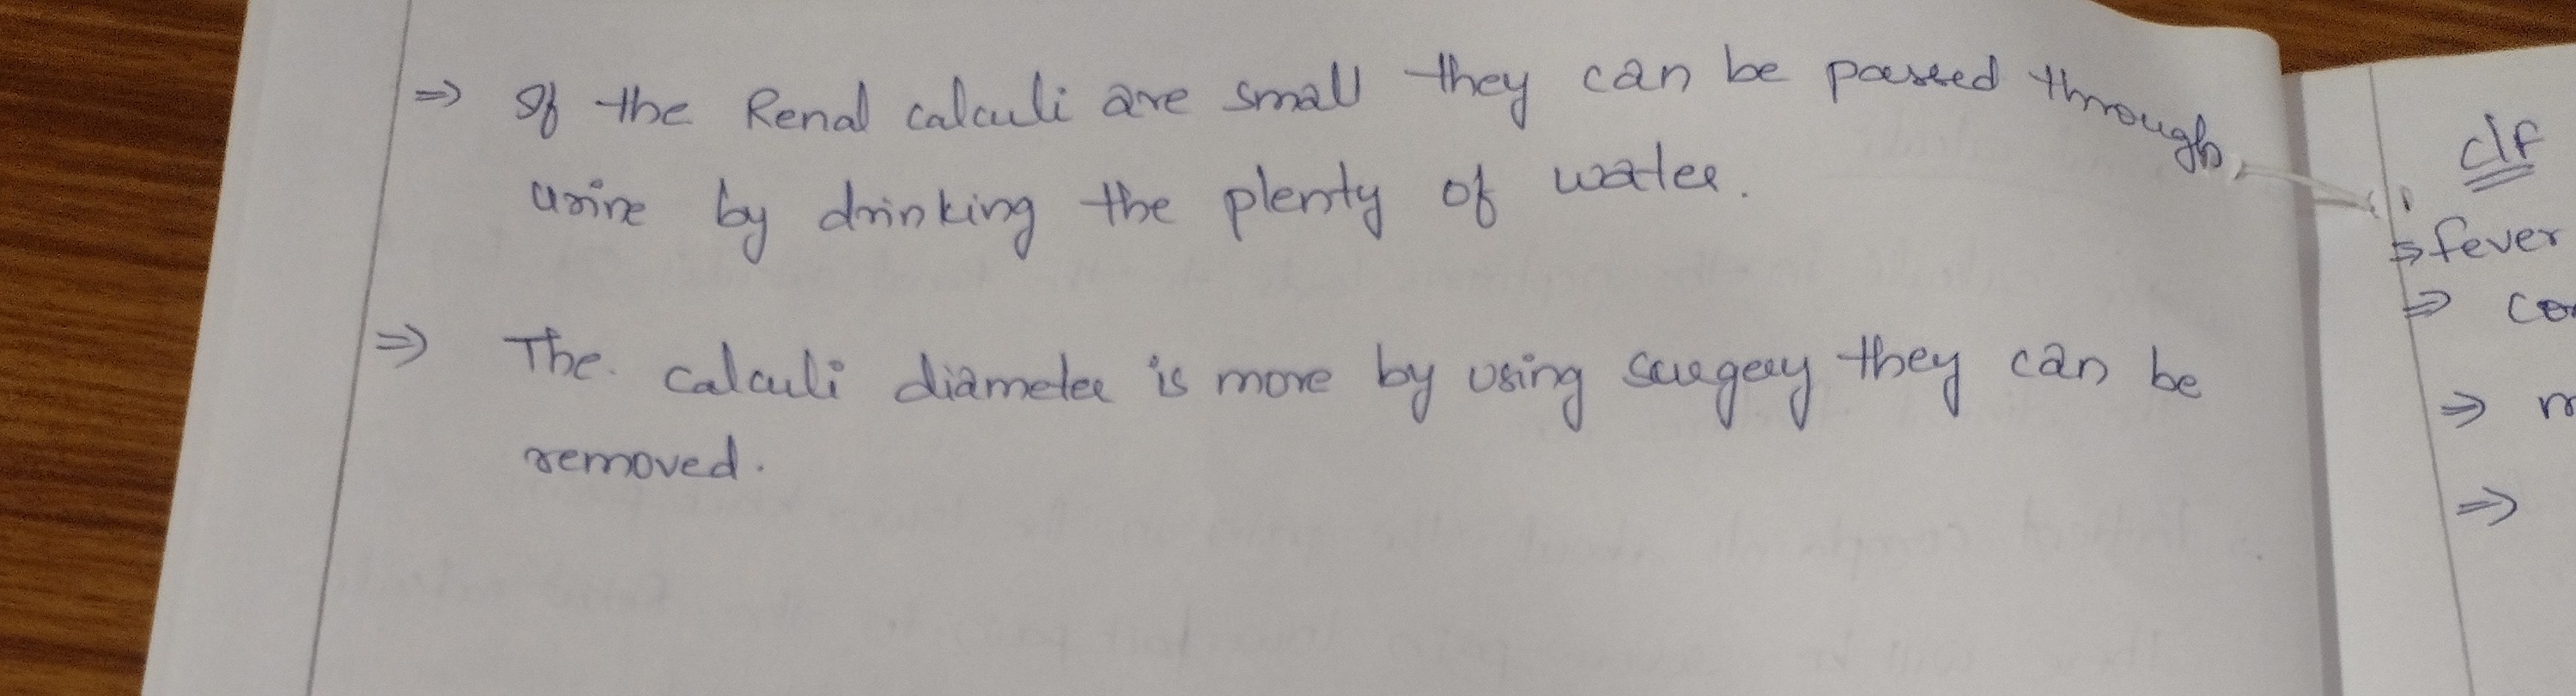 ⇒ If the Renal calculi are small they can be passed through
urine by drinking the plenty of water.
⇒ The calculi diameter is more by using surgery they can be
removed.
c/f
⇒ fever
⇒
⇒
⇒